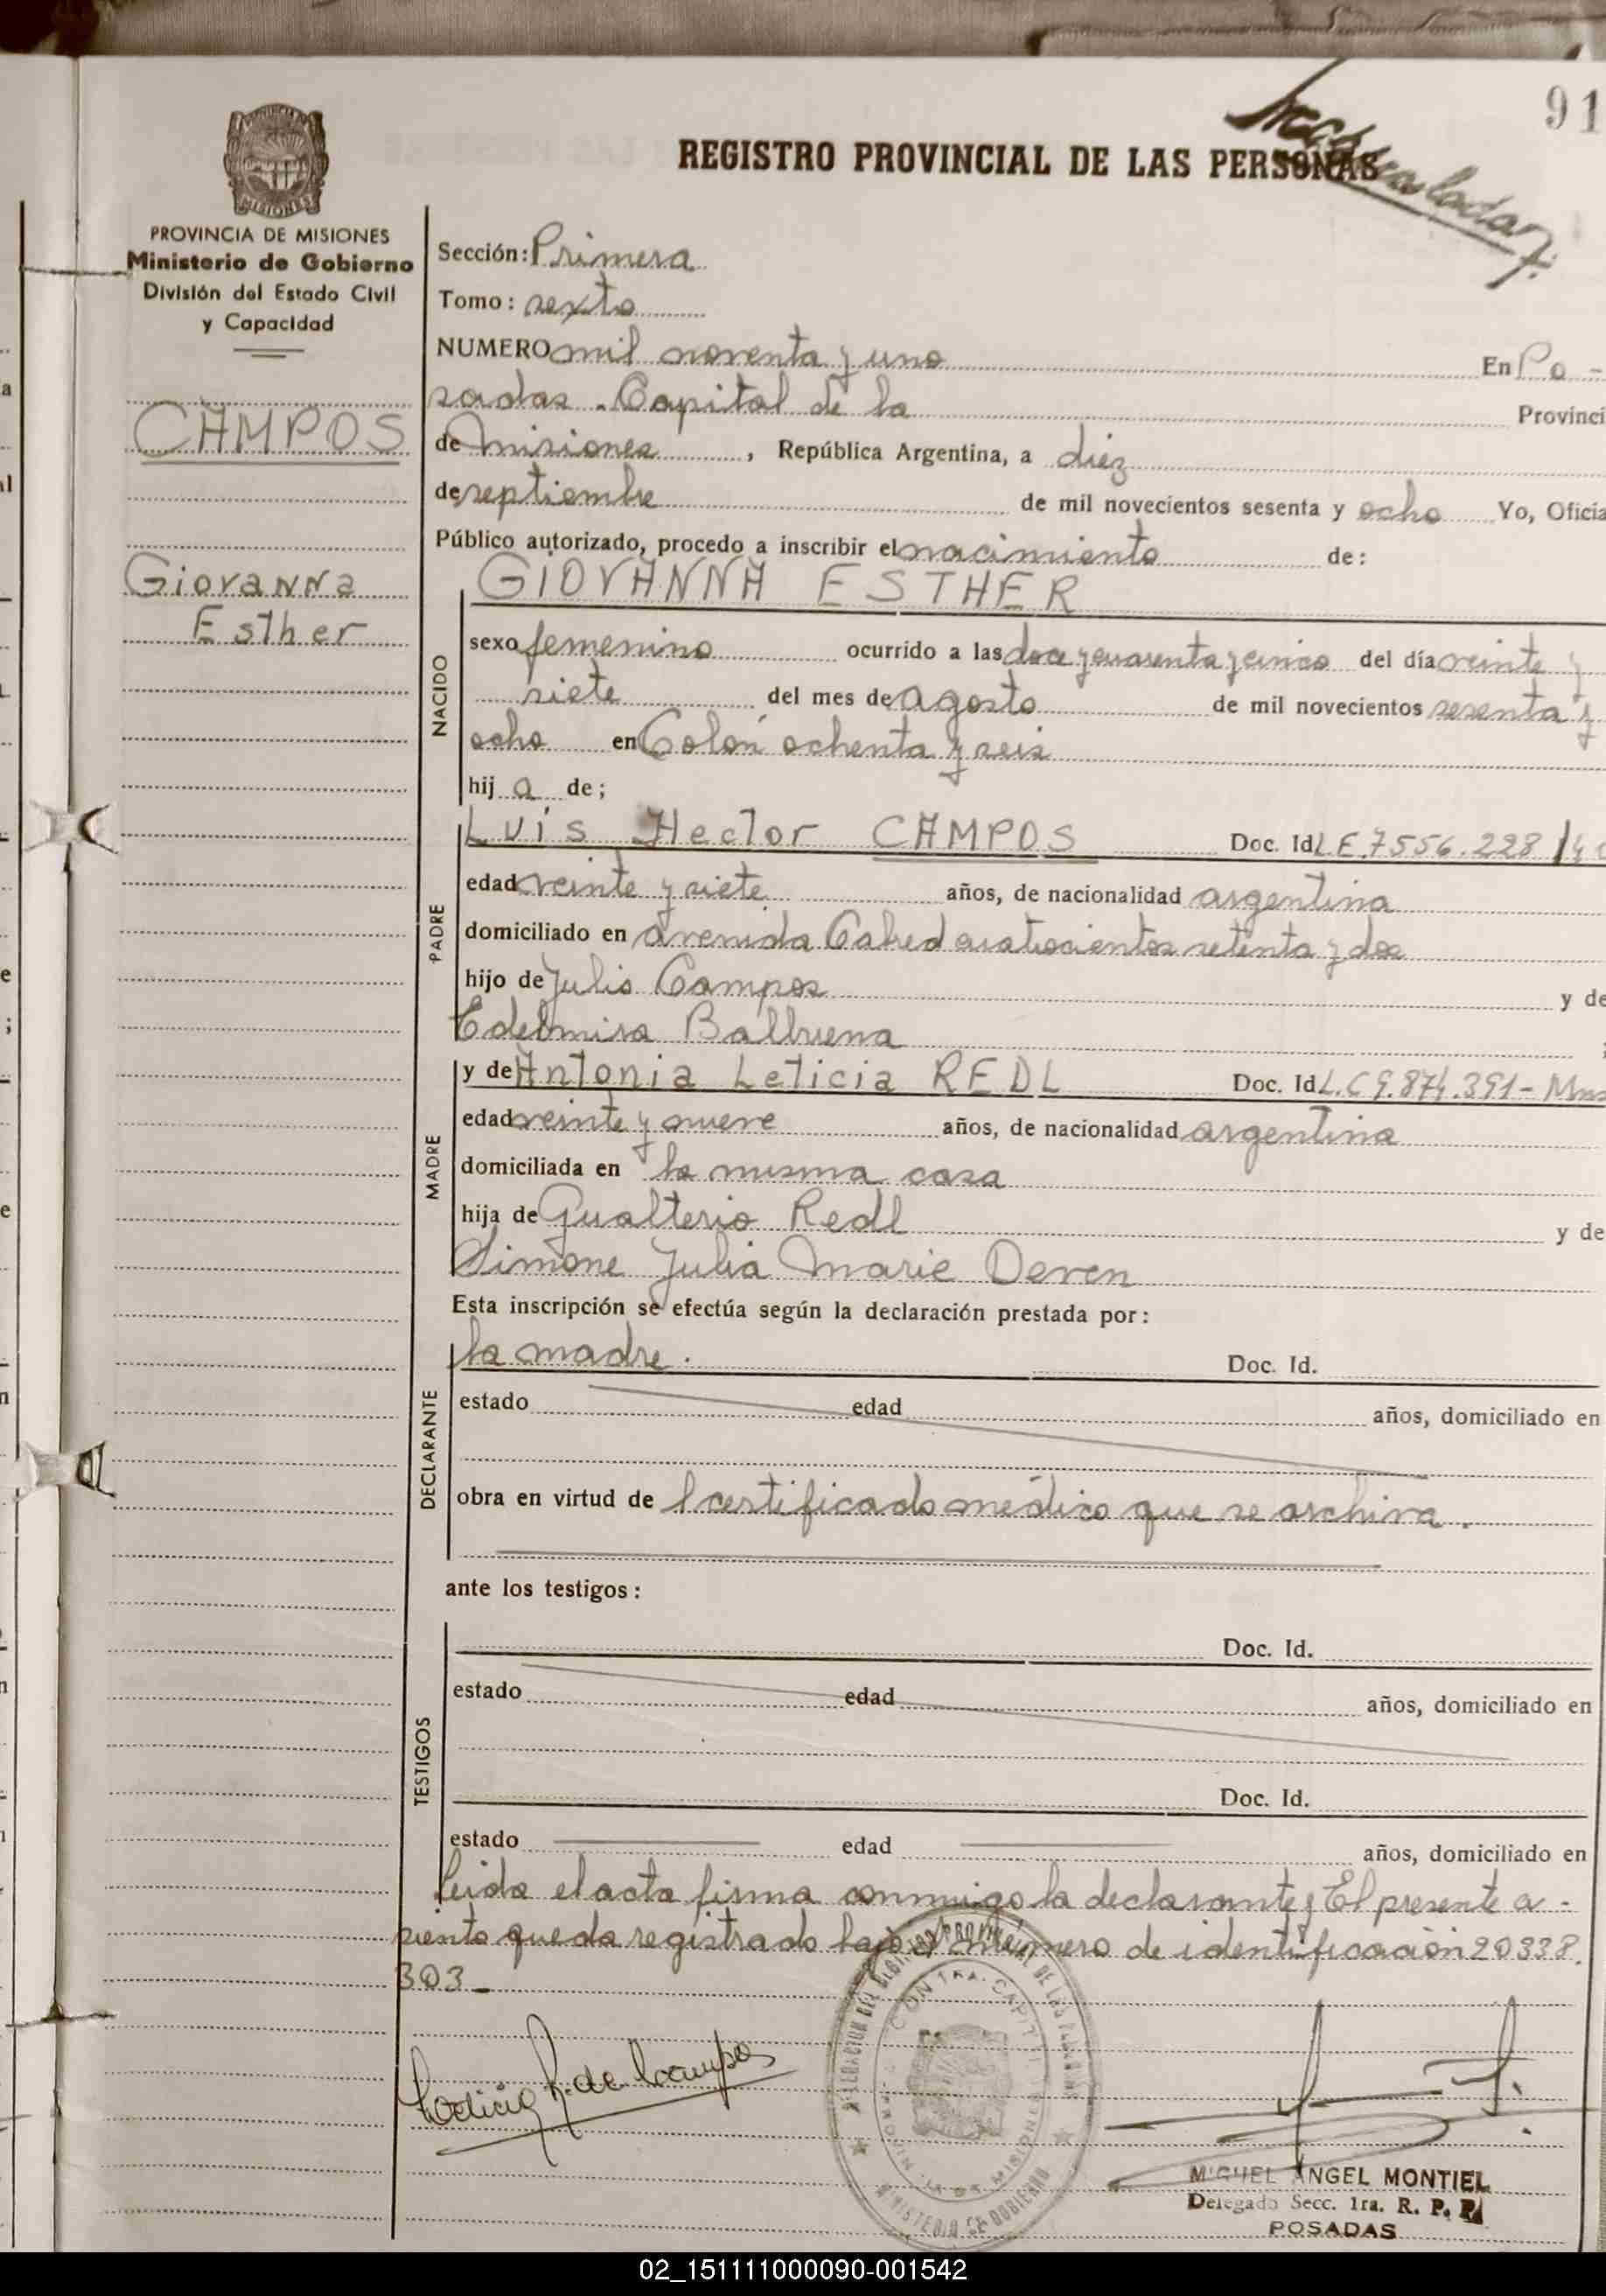 91
REGISTRO PROVINCIAL DE LAS PERSONAS
PROVINCIA DE MISIONES
Ministerio de Gobierno
División del Estado Civil
y Capacidad
CAMPOS
Giovanna
Esther
Sección: Primera
Tomo: sexto
NUMERO mil noventa y uno En Po-
sadas. Capital de la Provinci
de Misiones, República Argentina, a diez
de septiembre de mil novecientos sesenta y ocho Yo, Oficia
Público autorizado, procedo a inscribir el nacimiento de:
GIOVANNA ESTHER
NACIDO
sexo femenino ocurrido a las doce y cuarenta y cinco del día veinte y
siete del mes de agosto de mil novecientos sesenta y
ocho en Colón ochenta y seis
hij a de;
PADRE
Luis Hector CAMPOS Doc. Id L.E. 7556.228
edad veinte y siete años, de nacionalidad argentina
domiciliado en avenida Cabred cuatrocientos setenta y dos
hijo de Julio Campos y de
Edelmira Balbuena
MADRE
y de Antonia Leticia REDL Doc. Id L.C 9.874.391- Mns
edad veinte y nueve años, de nacionalidad argentina
domiciliada en la misma casa
hija de Gualterio Redl y de
Simone Julia Marie Deven
Esta inscripción se efectúa según la declaración prestada por:
DECLARANTE
la madre. Doc. Id.
estado edad años, domiciliado en
obra en virtud de l certificado médico que se archiva.
ante los testigos:
TESTIGOS
Doc. Id.
estado edad años, domiciliado en
Doc. Id.
estado edad años, domiciliado en
Leida el acta firma conmigo la declarante; El presente a-
siento queda registrado bajo el número de identificación 20338.
303_
Leticia R. de Campos
MINISTERIO DE GOBIERNO
MIGUEL ANGEL MONTIEL
Delegado Secc. 1ra. R. P. P.
POSADAS
02_151111000090-001542